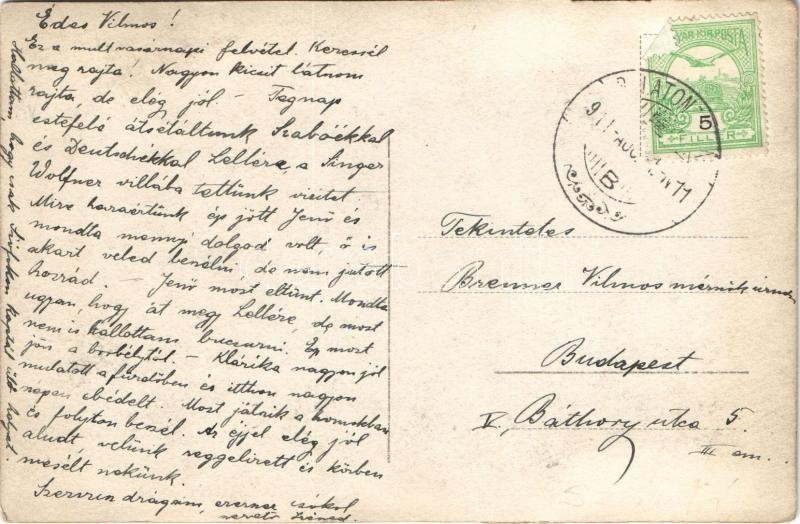 Édes Vilmos!
Ez a mult vasárnapi felvétel. Keressél
meg rajta! Nagyon kicsit látnom
rajta, de elég jól - Tegnap
estefelé átsétáltunk Szabóékkal
és Deutschékkal Lellére, a Singer
Wolfner villába tettünk vizitet
Mire hazaértünk épp jött Jenő és
mondta mennyi dolgod volt, ő is
akart veled beszélni, de nem jutott
hozzád. - Jenő most eltünt. Mondta
ugyan, hogy át megy Lellére, de most
nem is hallottam bucsuzni. Ép most
jön a borbélytól. - Klárika nagyon jól
mulatott a fürdőben és itthon nagyon
szépen ebédelt. Most játszik a homokban
és folyton beszél. Az éjjel elég jól
aludt, velünk reggelizett és közben
mesélt nekünk.
Szervusz drágám, ezerszer csókol
szerető Iréned.
Hallottam hogy csak Siófokon kaptál ülő helyet.
YAR·KIR·POSTA
5
FILLÉR
BALATON
911 AUG
B
Tekintetes
Brenner Vilmos mérnök urnak
Budapest
V. Báthory utca 5.
III em.